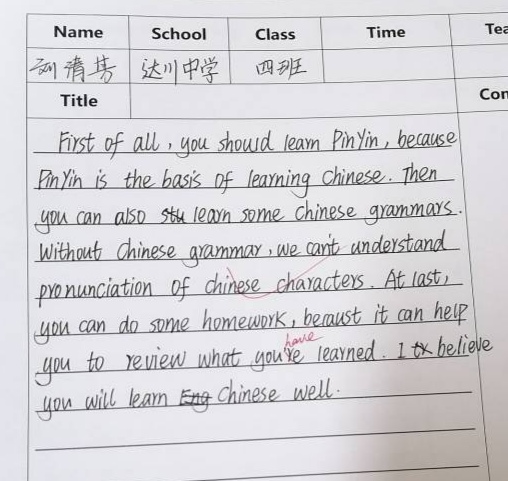 Name School Class Time Tea
刘清芳 达川中学 四班
Title Con
First of all, you should learn PinYin, because
PinYin is the basis of learning Chinese. Then
you can also stu learn some Chinese grammars.
Without Chinese grammar, we can't understand
pronunciation of chinese characters. At last,
you can do some homework, becaust it can help
have
you to review what you're learned. I tx believe
you will learn Eng Chinese well.